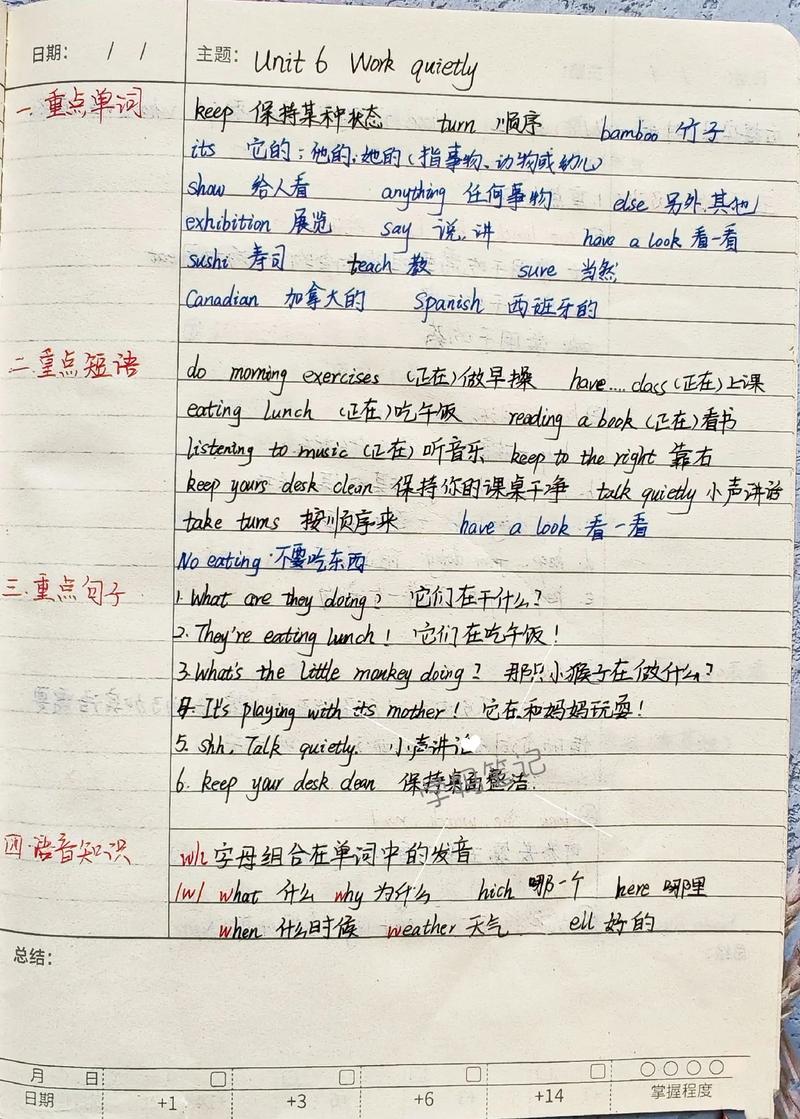 日期： / /
主题： Unit 6 Work quietly
一.重点单词
keep 保持某种状态 turn 顺序 bamboo 竹子
its 它的；他的,她的(指事物、动物或幼儿)
show 给人看 anything 任何事物 else 另外,其他
exhibition 展览 say 说,讲 have a look 看一看
sushi 寿司 teach 教 sure 当然
Canadian 加拿大的 Spanish 西班牙的
二.重点短语
do morning exercises (正在)做早操 have....class (正在)上课
eating lunch (正在)吃午饭 reading a book (正在)看书
listening to music (正在)听音乐 keep to the right 靠右
keep yours desk clean 保持你的课桌干净 talk quietly 小声讲话
take turns 按顺序来 have a look 看一看
No eating 不要吃东西
三.重点句子
1. What are they doing? 它们在干什么?
2. They're eating lunch! 它们在吃午饭!
3. What's the little monkey doing? 那只小猴子在做什么?
4. It's playing with its mother! 它在和妈妈玩耍!
5. shh. Talk quietly. 小声讲话
6. keep your desk clean 保持桌面整洁.
学桐笔记
四.语音知识
wh 字母组合在单词中的发音
/w/ what 什么 why 为什么 hich 哪一个 here 哪里
when 什么时候 weather 天气 ell 好的
总结：
月 日
日期 +1 +3 +6 +14 掌握程度